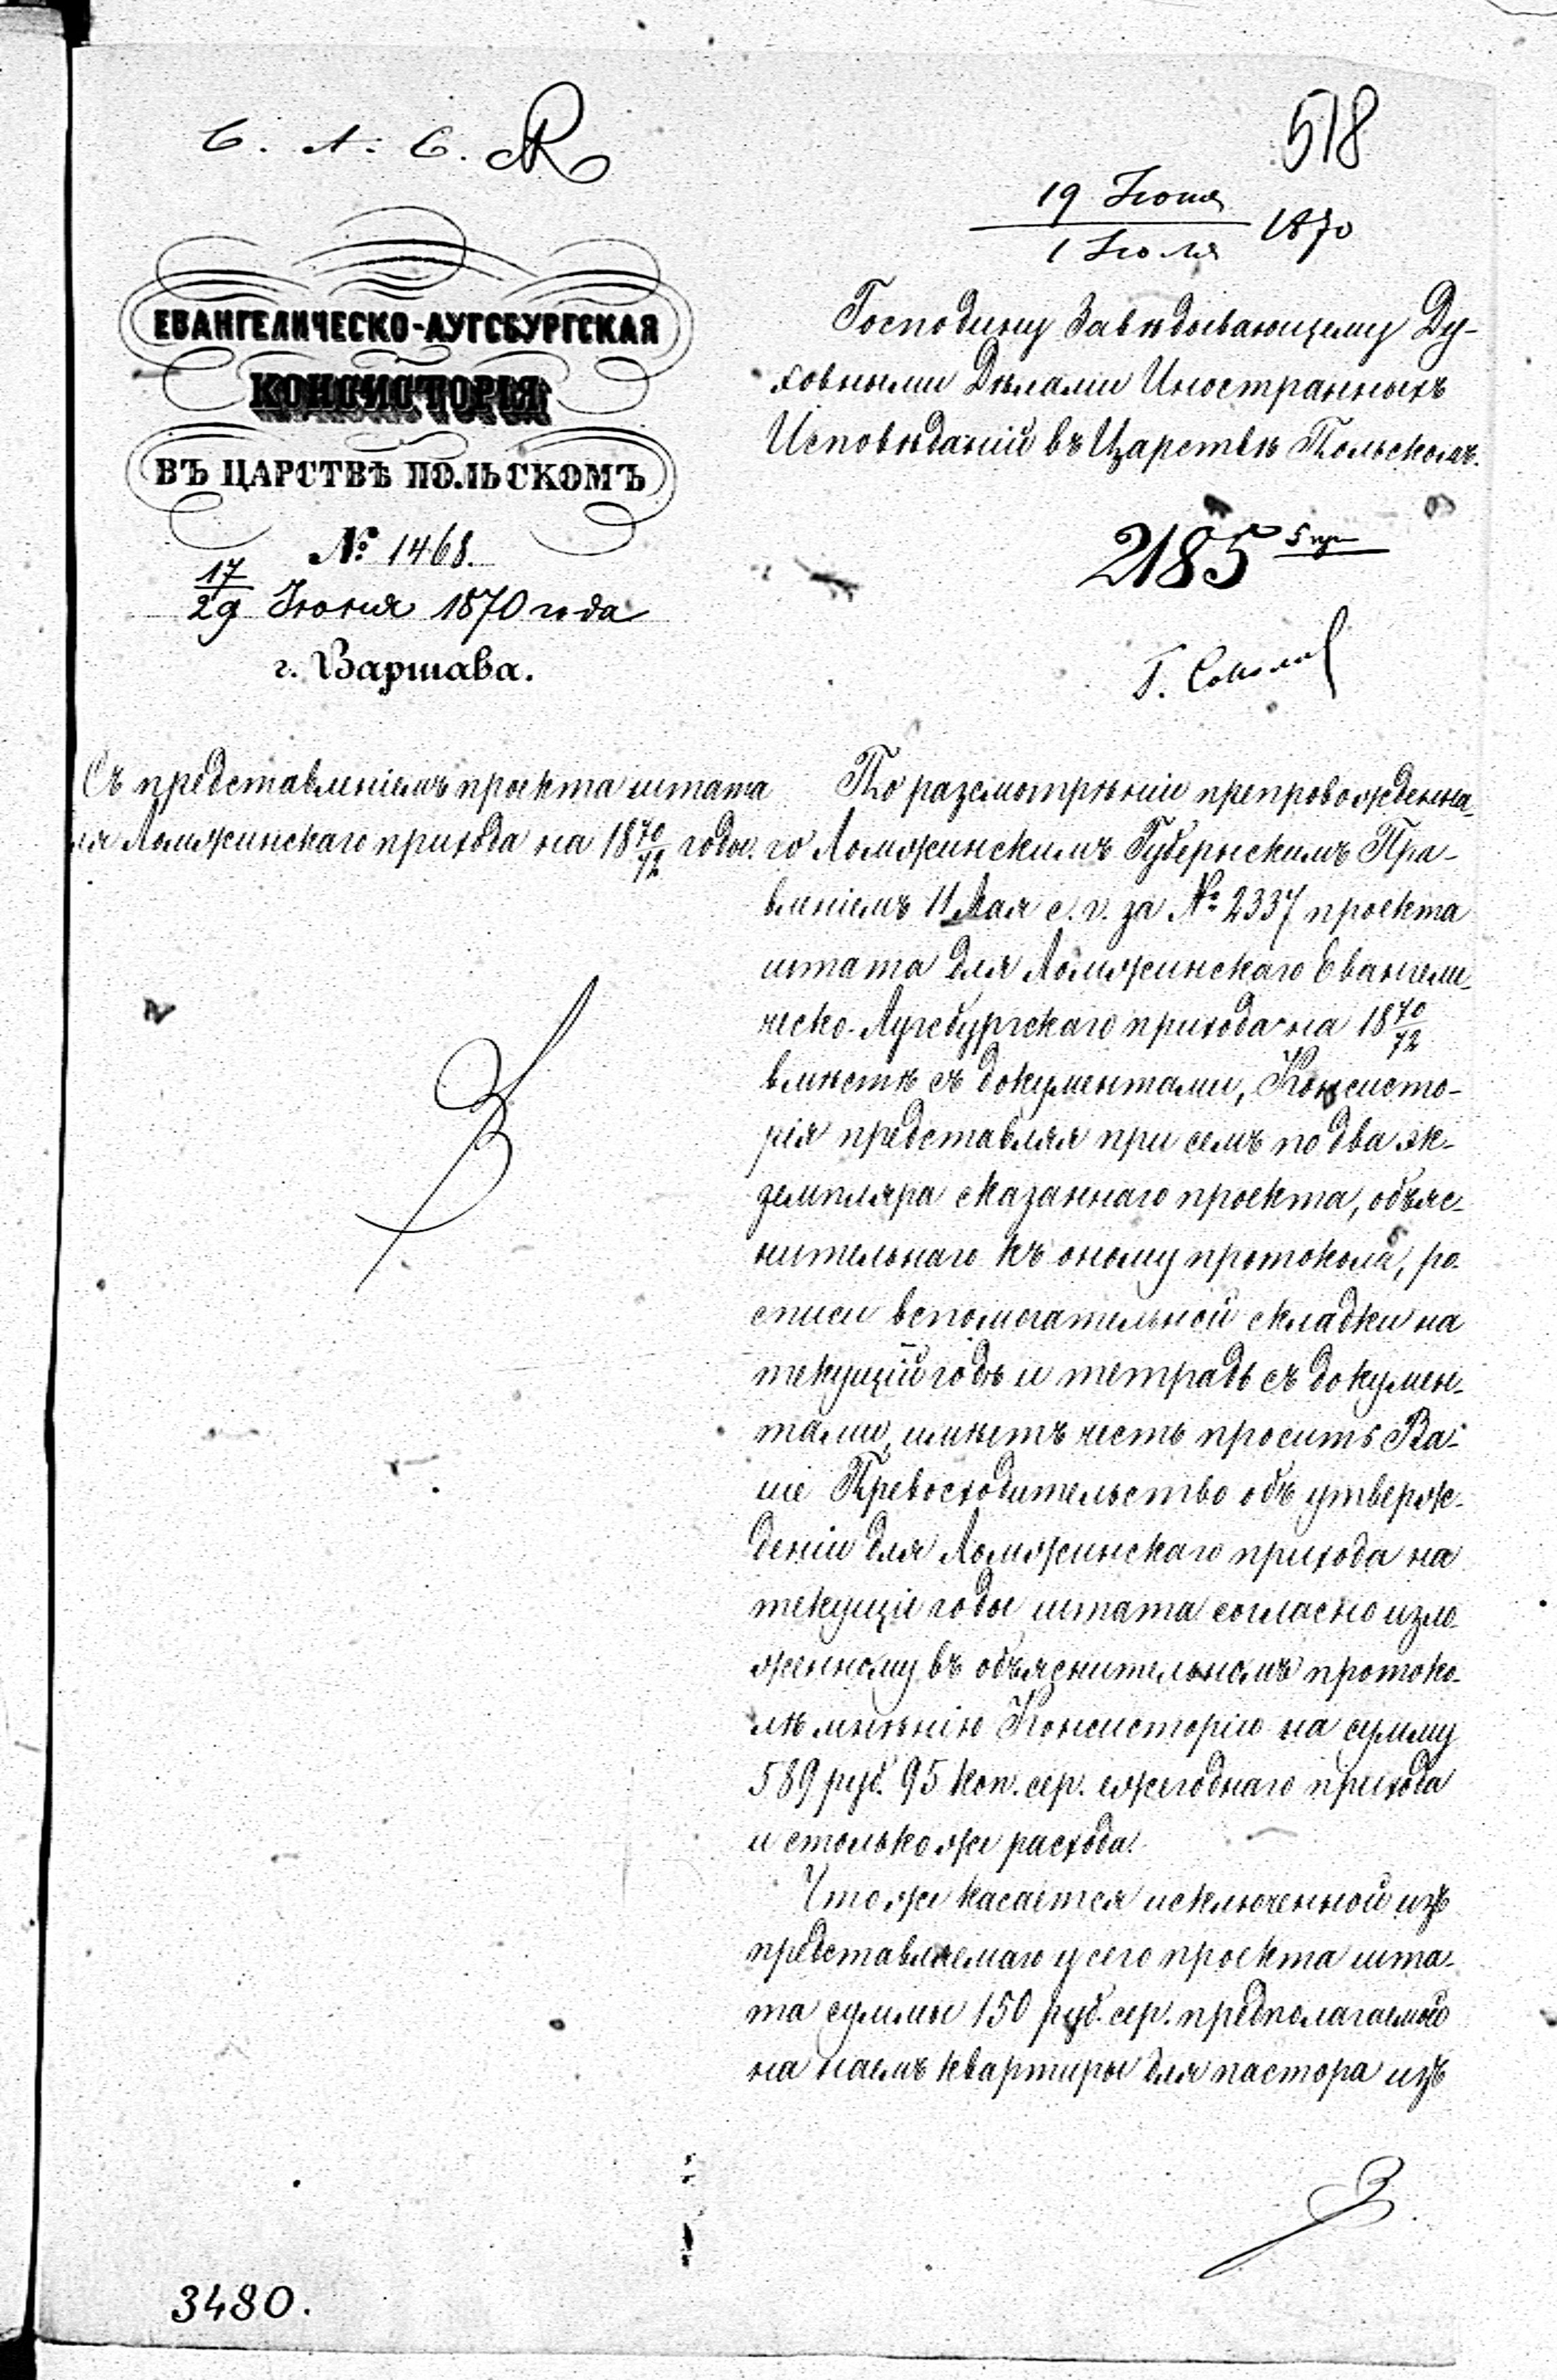 518
19 Іюня
1 Іюля 1870
ЕВАНГЕЛИЧЕСКО-АУГСБУРГСКАЯ
КОНСИСТОРІЯ
ВЪ ЦАРСТВѢ ПОЛЬСКОМЪ
№ 1468.
17/29 Іюня 1870 года
г. Варшава.
Съ представленіемъ проекта штата
для Ломжинскаго прихода на 1870/72 годы.
Господину Завѣдывающему Ду-
ховными Дѣлами Иностранныхъ
Исповѣданій въ Царствѣ Польскомъ.
2185
Г. Соколов
По разсмотрѣніи препровожденна-
го Ломжинскимъ Губернскимъ Пра-
вленіемъ 11 Мая с. г. за № 2337 проекта
штата для Ломжинскаго Евангели-
ческо-Аугсбургскаго прихода на 1870/72
вмѣстѣ съ документами, Консисто-
рія представляя при семъ по два эк-
земпляра сказаннаго проекта, объяс-
нительнаго къ оному протокола, ро-
списи вспомогательной складки на
текущій годъ и тетрадь съ докумен-
тами, имѣетъ честь просить Ва-
ше Превосходительство объ утверж-
деніи для Ломжинскаго прихода на
текущіе годы штата согласно изло-
женному въ объяснительномъ протоко-
лѣ мнѣнію Консисторіи на сумму
589 руб. 95 коп. сер. ежегоднаго прихода
и столько же расхода.
Что же касается исключенной изъ
представляемаго у сего проекта шта-
та суммы 150 руб. сер. предполагаемой
на наемъ квартиры для пастора изъ
3480.